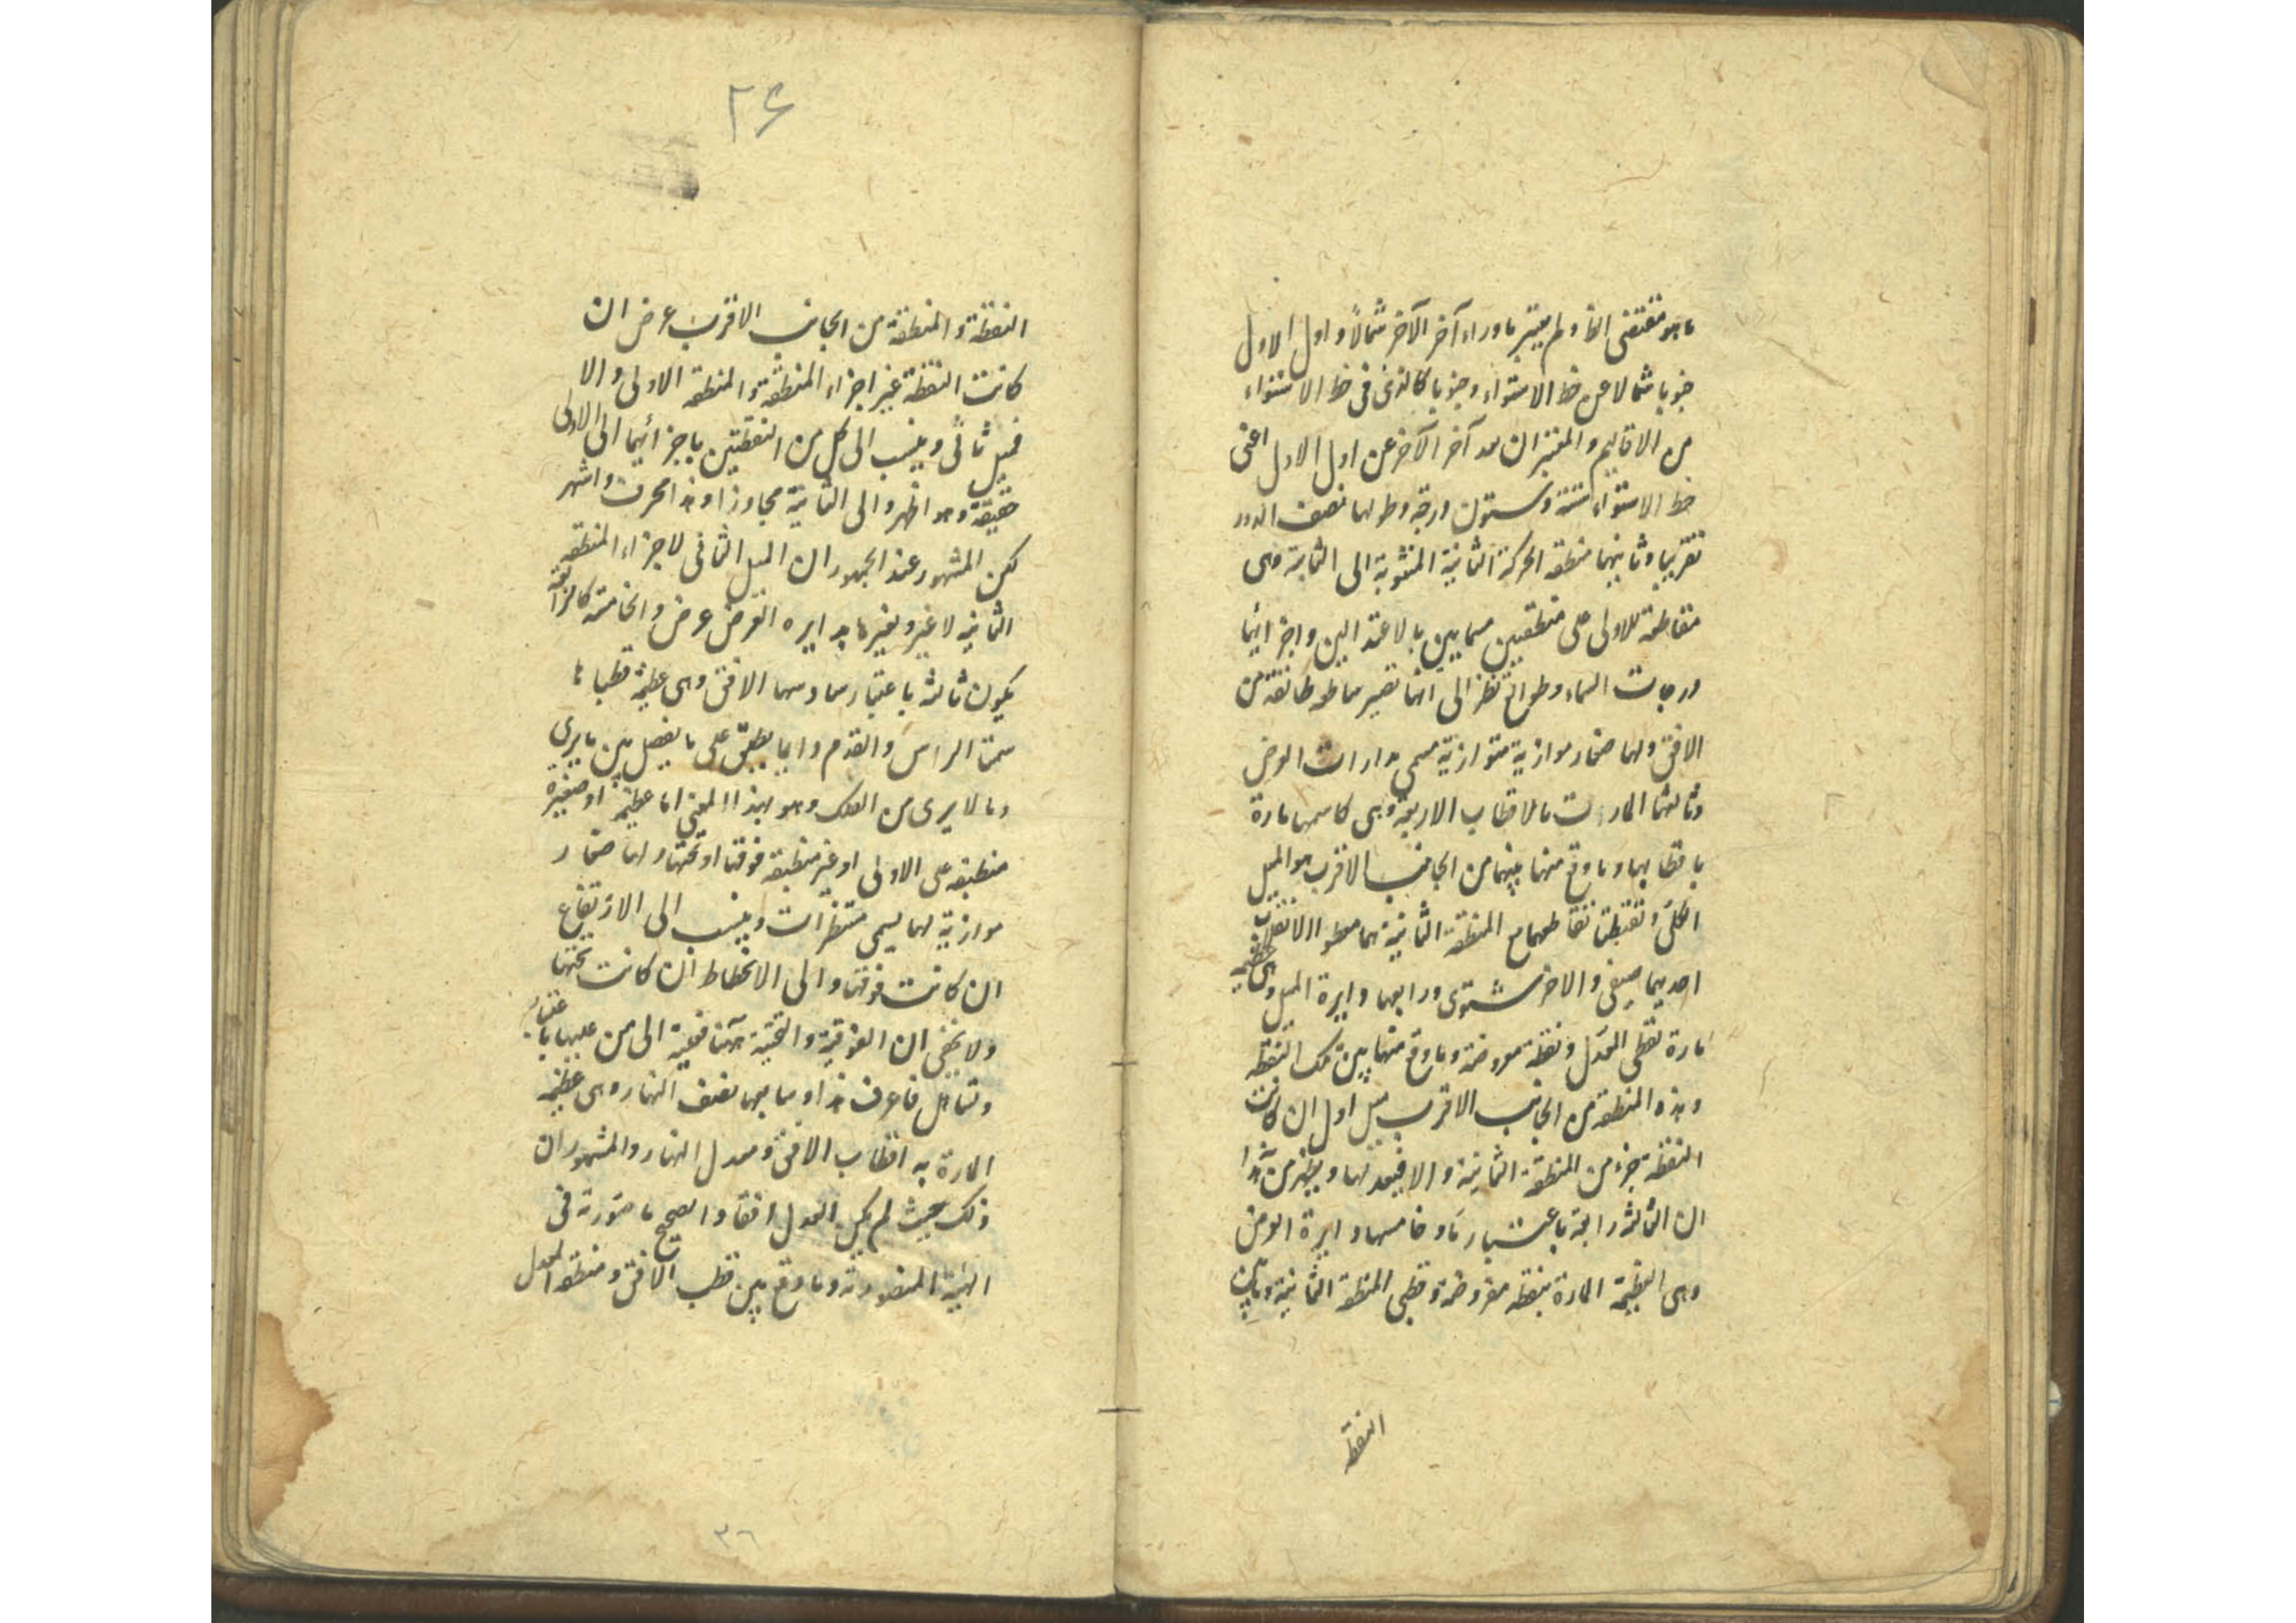 ما هو مقتضى الفا ولم يعتبر ما وراء آخر الآخر شمالا و اول الاول
جنوبا شمالا عن خط الاستواء وجنوبا كالذى فى خط الاستواء
من الاقاليم والمعتبر ان بعد آخر الآخر عن اول الاول اعنى
خط الاستواء ستة وستون درجة وطولها نصف الدور
تقريبا وثانيتها منطقة الحركة الثانية المنسوبة الى الثانية وهى
مقاطعة للاولى على منطقتين مسمايين بالاعتدالين واجزائها
درجات السماء وطوالع نظرا الى انها تصير ساطعة طالعة من
الافق ولها صغار موازية متوازية تسمى مدارات العرض
وثالثها المارة بالاقطاب الاربعة وهى كاسمها مارة
باقطابهما وما وقع منها بينهما من الجانب الاقرب هو الميل
الكلى ونقطتا تقاطعها مع المنطقة الثانية هما الانقلاب
احديهما صيفى والاخر شتوى ورابعها دايرة الميل وهى عظيمة
مارة بقطبى المعدل ونقطة مفروضة وما وقع منها بين تلك النقطة
وهذه المنطقة من الجانب الاقرب ميل اول ان كانت
النقطة جزء من المنطقة الثانية والا فبعد لها ويظهر من هذا
ان الثالثة رابعة باعتبار ما وخامسها دايرة العرض
وهى العظيمة المارة بنقطة مفروضة وقطبى المنطقة الثانية وما بين
النقطة
٢۶
النقطة والمنطقة من الجانب الاقرب عرض ان
كانت النقطة غير اجزاء المنطقة والمنطقة الاولى والا
فميل ثانى وينسب الى كل من النقطتين باجزائهما الى الاولى
حقيقة وهو اظهر والى الثانية مجاوزا وهذا احرى واشهر
لكن المشهور عند الجمهور ان الميل الثانى لاجزاء المنطقة
الثانية لا غير ولغيرها بدايره العرض عرض والخامسة كالرابعة
يكون ثالثة باعتبار ما وسادسها الافق وهى عظيمة قطباها
سمتا الراس والقدم وايضا يطلق على ما يفصل بين ما يرى
وما لا يرى من الفلك وهو بهذا المعنى اما عظيمة او صغيرة
منطبقة على الاولى او غير منطبقة فوقها او تحتها ولها صغار
موازية لها يسمى مقنطرات وينسب الى الارتفاع
ان كانت فوقها والى الانحطاط ان كانت تحتها
ولا يخفى ان الفوقية والتحتية هنا الى من عليها باعتبار
وتساهل فاعرف هذا وسابعها نصف النهار وهى عظيمة
المارة به اقطاب الافق ومعدل النهار والمشهور ان
ذلك حيث لم يكن المعدل افقا والصحيح ما صورته فى
الهيئة المنصورية وما وقع بين قطب الافق ومنطقة المعدل
٣٦